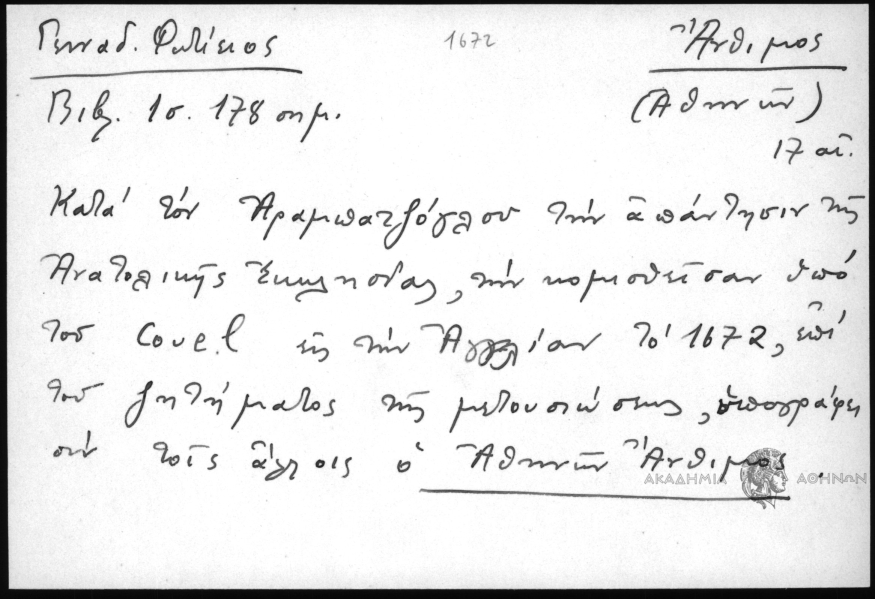 Γενναδ. Φωτίειος 1672 Ἄνθιμος
Βιβλ. 1 σ. 178 σημ. (Ἀθηνῶν)
17 αἰ.
Κατά τόν Ἀραμπατζόγλου τήν ἀπάντησιν τῆς
Ἀνατολικῆς Ἐκκλησίας, τήν κομισθεῖσαν ὑπό
τοῦ Covel εἰς τήν Ἀγγλίαν τό 1672, ἐπί
τοῦ ζητήματος τῆς μετουσιώσεως, ὑπογράφει
σύν τοῖς ἄλλοις ὁ Ἀθηνῶν Ἄνθιμος.
ΑΚΑΔΗΜΙΑ ΑΘΗΝΩΝ